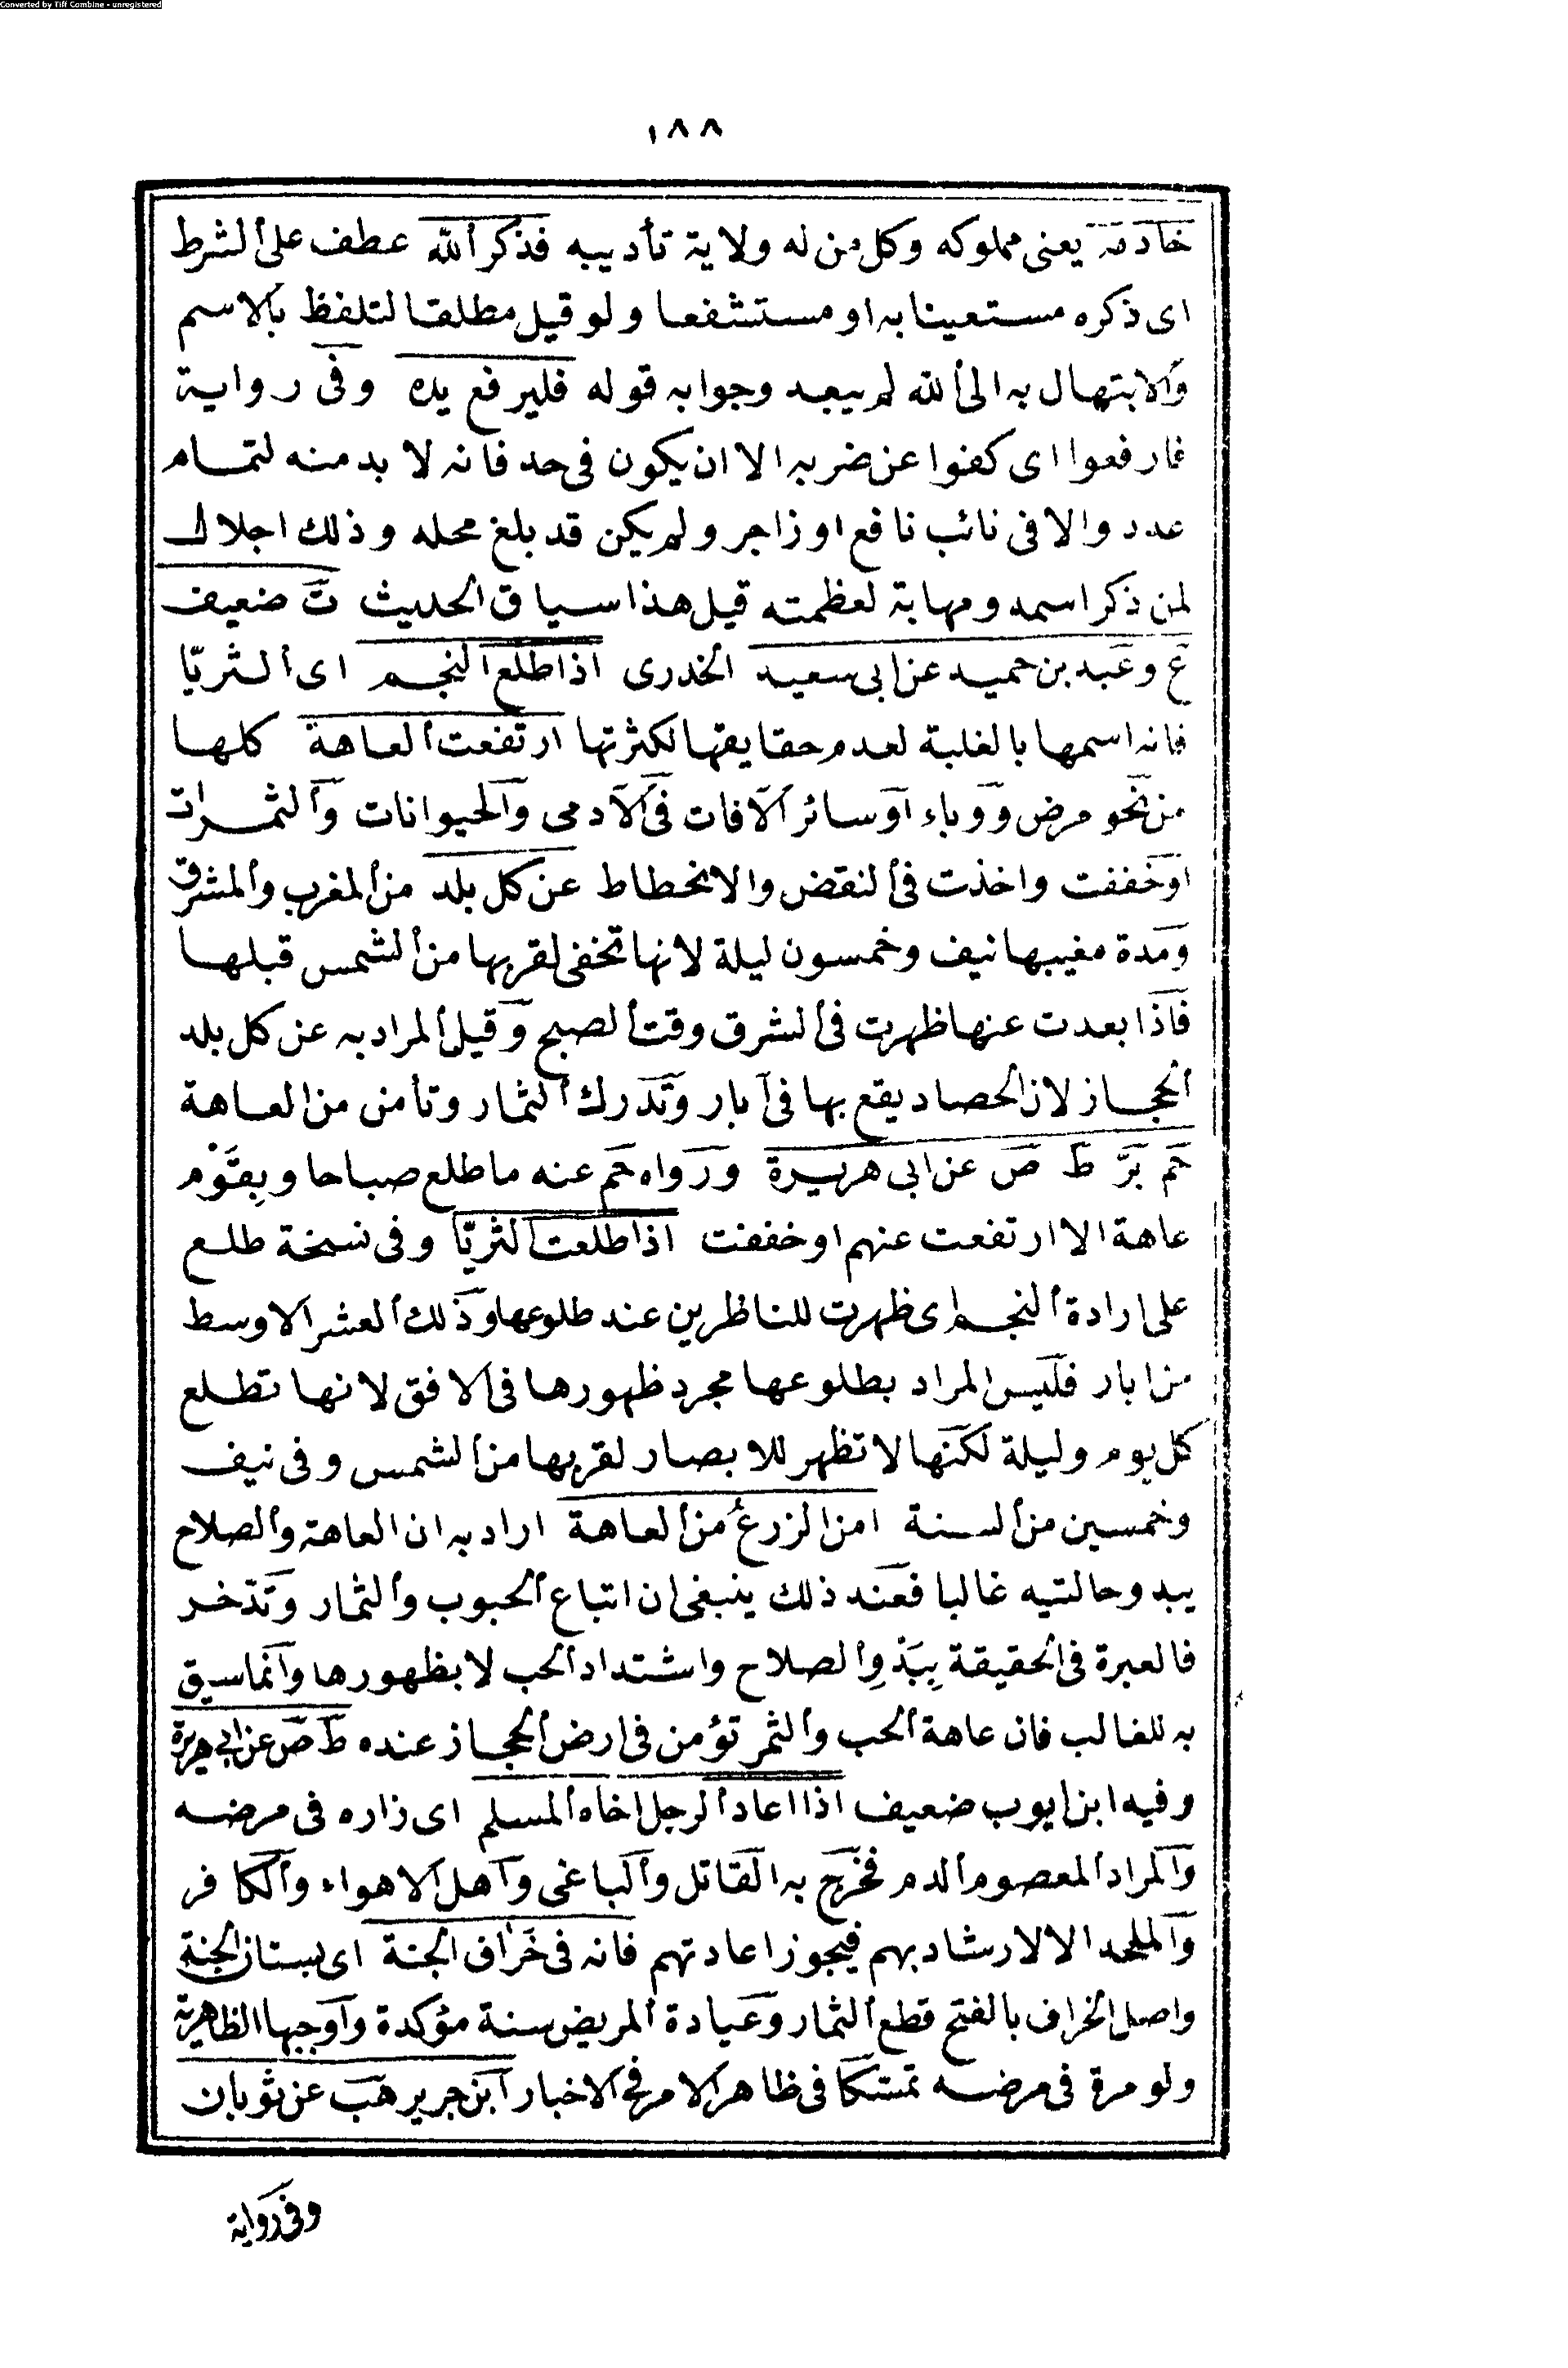 Converted by Tiff Combine - unregistered
١٨٨
خادمه يعنى مملوكه وكل من له ولاية تأديبه فذكر الله عطف على الشرط
اى ذكره مستعينا به او مستشفعا ولو قيل مطلقا لتلفظ بالاسم
والابتهال به الى الله لم يبعد وجوابه قوله فليرفع يده وفى رواية
فارفعوا اى كفوا عن ضربه الا ان يكون فى حد فانه لا بد منه لتمام
عدد والا فى نائب نافع او زاجر ولم يكن قد بلغ محله وذلك اجلال
لمن ذكر اسمه ومهابة لعظمته قيل هذا سياق الحديث ت ضعيف
ع وعبد بن حميد عن ابى سعيد الخدرى اذا طلع النجم اى الثريّا
فانه اسمها بالغلبة لعدم حقايقها لكثرتها ارتفعت العاهة كلها
من نحو مرض ووباء او سائر الآفات فى الآدمى والحيوانات والثمرات
اوخففت واخذت فى النقض والانحطاط عن كل بلد من المغرب والمشرق
ومدة مغيبها نيف وخمسون ليلة لانها تخفى لقربها من الشمس قبلها
فاذا بعدت عنها ظهرت فى الشرق وقت الصبح وقيل المراد به عن كل بلد
الحجاز لان الحصاد يقع بها فى آبار وتدرك الثمار وتأمن من العاهة
حم بر ط ص عن ابى هريرة ورواه حم عنه ما طلع صباحا وبقوم
عاهة الا ارتفعت عنهم او خففت اذا طلعت الثريّا وفى نسخة طلع
على ارادة النجم اى ظهرت للناظرين عند طلوعها وذلك العشر الاوسط
من ابار فليس المراد بطلوعها مجرد ظهورها فى الافق لانها تطلع
كل يوم وليلة لكنها لا تظهر للابصار لقربها من الشمس وفى نيف
وخمسين من السنة امن الزرع من العاهة اراد به ان العاهة والصلاح
يبدو حالتيه غالبا فعند ذلك ينبغى ان اتباع الحبوب والثمار وتدخر
فالعبرة فى الحقيقة ببدو الصلاح واشتداد الحب لا بظهورها وانما سيق
به للغالب فان عاهة الحب والثمر تؤمن فى ارض الحجاز عنده ط ص عن ابى هريرة
وفيه ابن ايوب ضعيف اذا اعاد الرجل اخاه المسلم اى زاره فى مرضه
والمراد المعصوم الدم فخرج به القاتل والباغى واهل الاهواء والكافر
والملحد الا لارشاد بهم فيجوز اعادتهم فانه فى خراف الجنة اى بستان الجنة
واصل الخراف بالفتح قطع الثمار وعيادة المريض سنة مؤكدة واوجبها الظاهرية
ولو مرة فى مرضه تمسّكا فى ظاهر الامر فى الاخبار ابن جرير هب عن ثوبان
وفى رواية